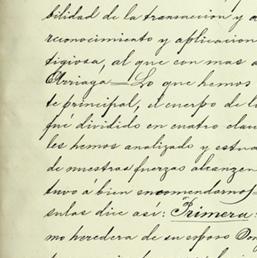 bilidad de la transacion y a
reconocimiento y aplicacion
tigiosa, al que con mas a
Arriaga — Lo que hemos
te principal, el cuerpo de l
fué dividido en cuatro clau
les hemos analizado y estu
de nuestras fuerzas alcanzen
tuvo á bien encomendarnos
sulas dice así: Primera:
mo heredera de su esposo Don